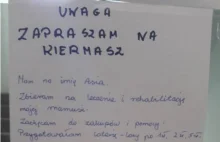 UWAGA
ZAPRASZAM NA
KIERMASZ
Mam na imię Ania.
Zbieram na leczenie i rehabilitację
mojej mamusi.
Zachęcam do zakupów i pomocy.
Przygotowałam